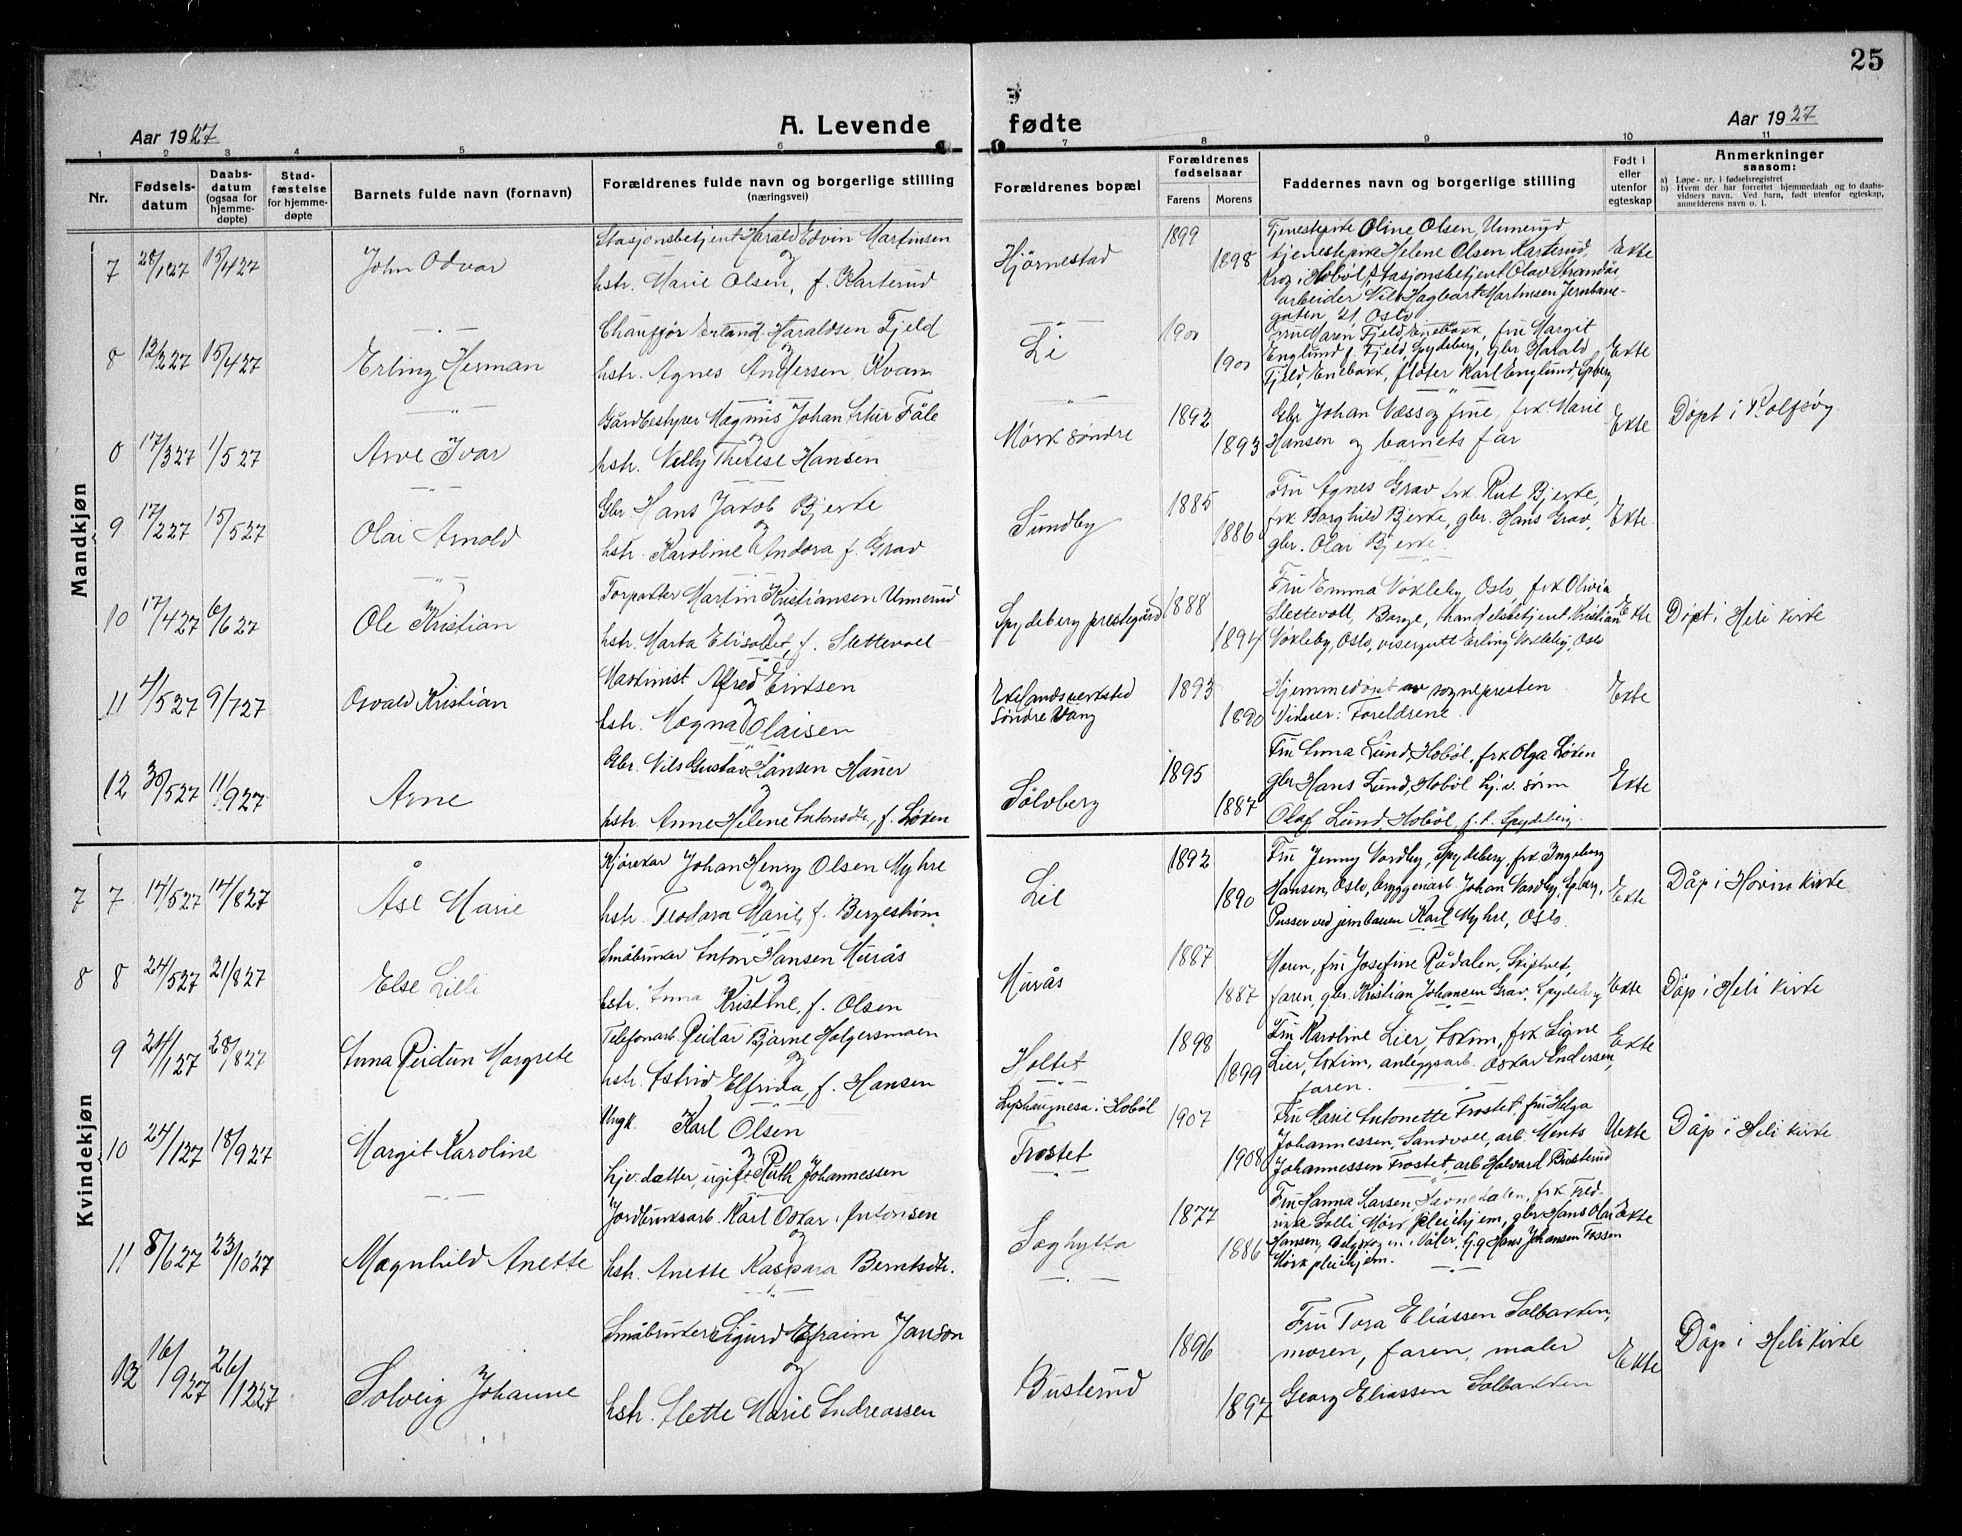 25
Aar 1927
A. Levende
fødte
Aar 1927
1 2 3 4 5 6 7 8 9 10 11
Nr.
Fødsels-
datum
Daabs-
datum
(ogsaa for
hjemme-
døpte)
Stad-
fæstelse
for hjemme-
døpte
Barnets fulde navn (fornavn)
Forældrenes fulde navn og borgerlige stilling
(næringsvei)
Forældrenes bopæl
Forældrenes
fødselsaar
Farens Morens
Faddernes navn og borgerlige stilling
Født i
eller
utenfor
egteskap
Anmerkninger
saasom:
a) Løpe-nr. i fødselsregistret
b) Hvem der har forrettet hjemmedaab og to daabs-
vidners navn. Ved barn, født utenfor egteskap,
anmelderens navn o. l.
Mandkjøn
7 15/4 27 John Odvar
Stasjonsbetjent Harald Edvin Martinsen
og
hstr. Marie Olsen, f. Karterud
Hjørnestad
1899
1898
Tjenestepike Oline Olsen, Unnerud
tjenestepike Helene Olsen Karterud,
Krog i Hobøl, Stasjonsbetjent Olav Strandås
arbeider Nils Hagbart Martinsen Jernbane-
gaten 21 Oslo
Ekte
8 15/4 27 Erling Herman
Chauffør Erland Haraldsen Fjeld
og
hstr. Agnes Andersen Kvam
Li
1900
1900
Fru Maren Fjeld, Enebakk, fru Margit
Englund f. Fjeld, Spydeberg, gbr. Harald
Fjeld, Enebakk, fløter Karl Englund, Spberg
Ekte
0 17/3 27 1/5 27 Arve Ivar
Gårdbestyrer Magnus Johan Artur Fåle
og
hstr. Nelly Therese Hansen
Mørk søndre
1892
1893
Gbr. Johan Næss og frue, frk Marie
Hansen og barnets far
Ekte
Døpt i Rolfsøy
9 17/2 27 15/5 27 Olai Arnold
Gbr. Hans Jakob Bjerke
og
hstr. Karoline Andora f. Grav
Sundby
1885
1886
Fru Agnes Grav frk. Rut Bjerke,
frk Borghild Bjerke, gbr. Hans Grav,
gbr. Olai Bjerke
Ekte
10 17/4 27 6/6 27 Ole Kristian
Forpakter Martin Kristiansen Unnerud
og
hstr. Marta Elisabet, f. Slettevoll
Spydeberg prestegård
1888
1894
Fru Emma Voxleby Oslo, frk Olivia
Slettevoll, Borge, handelsbetjent Kristian
Voxleby, Oslo, visergutt Erling Voxleby, Oslo
Ekte
Døpt i Heli kirke
11 4/5 27 9/7 27 Osvald Kristian
Maskinist Alfred Eriksen
og
hstr. Magna Olaisen
Ekelandsverksted
Søndre Vang
1893
1890
Hjemmedøpt av sognepresten
Vidner: Foreldrene
Ekte
12 30/5 27 11/9 27 Arne
Gbr. Nils Gustav Hansen Hauer
og
hstr. Anne Helene Antonsdtr, f. Løken
Sølvberg
1895
1887
Fru Anna Lund, Hobøl, frk Olga Løken
gbr. Hans Lund, Hobøl hj. v. sønn
Olaf Lund, Hobøl, f.h. Spydeberg
Ekte
Kvindekjøn
7 7 14/5 27 14/8 27 Åse Marie
Kjørekar Johan Henry Olsen Myhre
og
hstr. Teodora Marie, f. Bergestrøm
Lil
1892
1890
Fru Jenny Nordby, Spydeberg, frk Ingeborg
Hansen, Oslo, bryggeriarb. Johan Nordby, Spberg,
Pusser ved jernbanen Karl Myhre, Oslo
Ekte
Dåp i Hovin kirke
8 8 24/5 27 21/8 27 Else Lilli
Småbruker Anton Hansen Murås
og
hstr. Anna Kristine, f. Olsen
Murås
1887
1887
Moren, fru Josefine Rådalen, Skiptvet,
faren, gbr. Kristian Johansen Grav, Spydeberg
Ekte
Dåp i Heli kirke
9 9 24/1 27 28/8 27 Anna Reidun Margrete
Telefonarb. Reidar Bjarne Holgersmoen
og
hstr. Astrid Elfrida, f. Hansen
Holtet
1898
1899
Fru Karoline Lier, Askim, frk Signe
Lier, Askim, anleggsarb. Oskar Andersen,
faren.
Ekte
10 24/1 27 18/9 27 Margit Karoline
Ungk. Karl Olsen
og
hjv. datter, ugift Ruth Johannessen
i Hobøl
Frostet
1907
1908
Fru Marie Antonette Frostet, fru Helga
Johannessen, Sandvoll, arb. Ments
Johannessen Frostet, arb. Halvard Busterud
Uekte
Dåp i Heli kirke
11 8/6 27 23/10 27 Magnhild Anette
Jordbruksarb. Karl Oskar Antonsen
og
hstr. Anette Kaspara Berntsdtr.
Saghytta
1877
1886
Fru Hanna Larsen, Havnedalen, frk Fred-
rikke Solli, Mørk pleiehjem, gbr. Hans Olai
Hansen, i Våler, Hans Johansen Fossen
Mørk pleiehjem.
Ekte
12 16/9 27 26/12 27 Solveig Johanne
Småbruker Sigurd Efraim Janson
og
hstr. Alette Marie Andreassen
Busterud
1896
1897
Fru Tora Eliassen Solbakken,
moren, faren, maler
Georg Eliassen Solbakken
Ekte
Dåp i Heli kirke